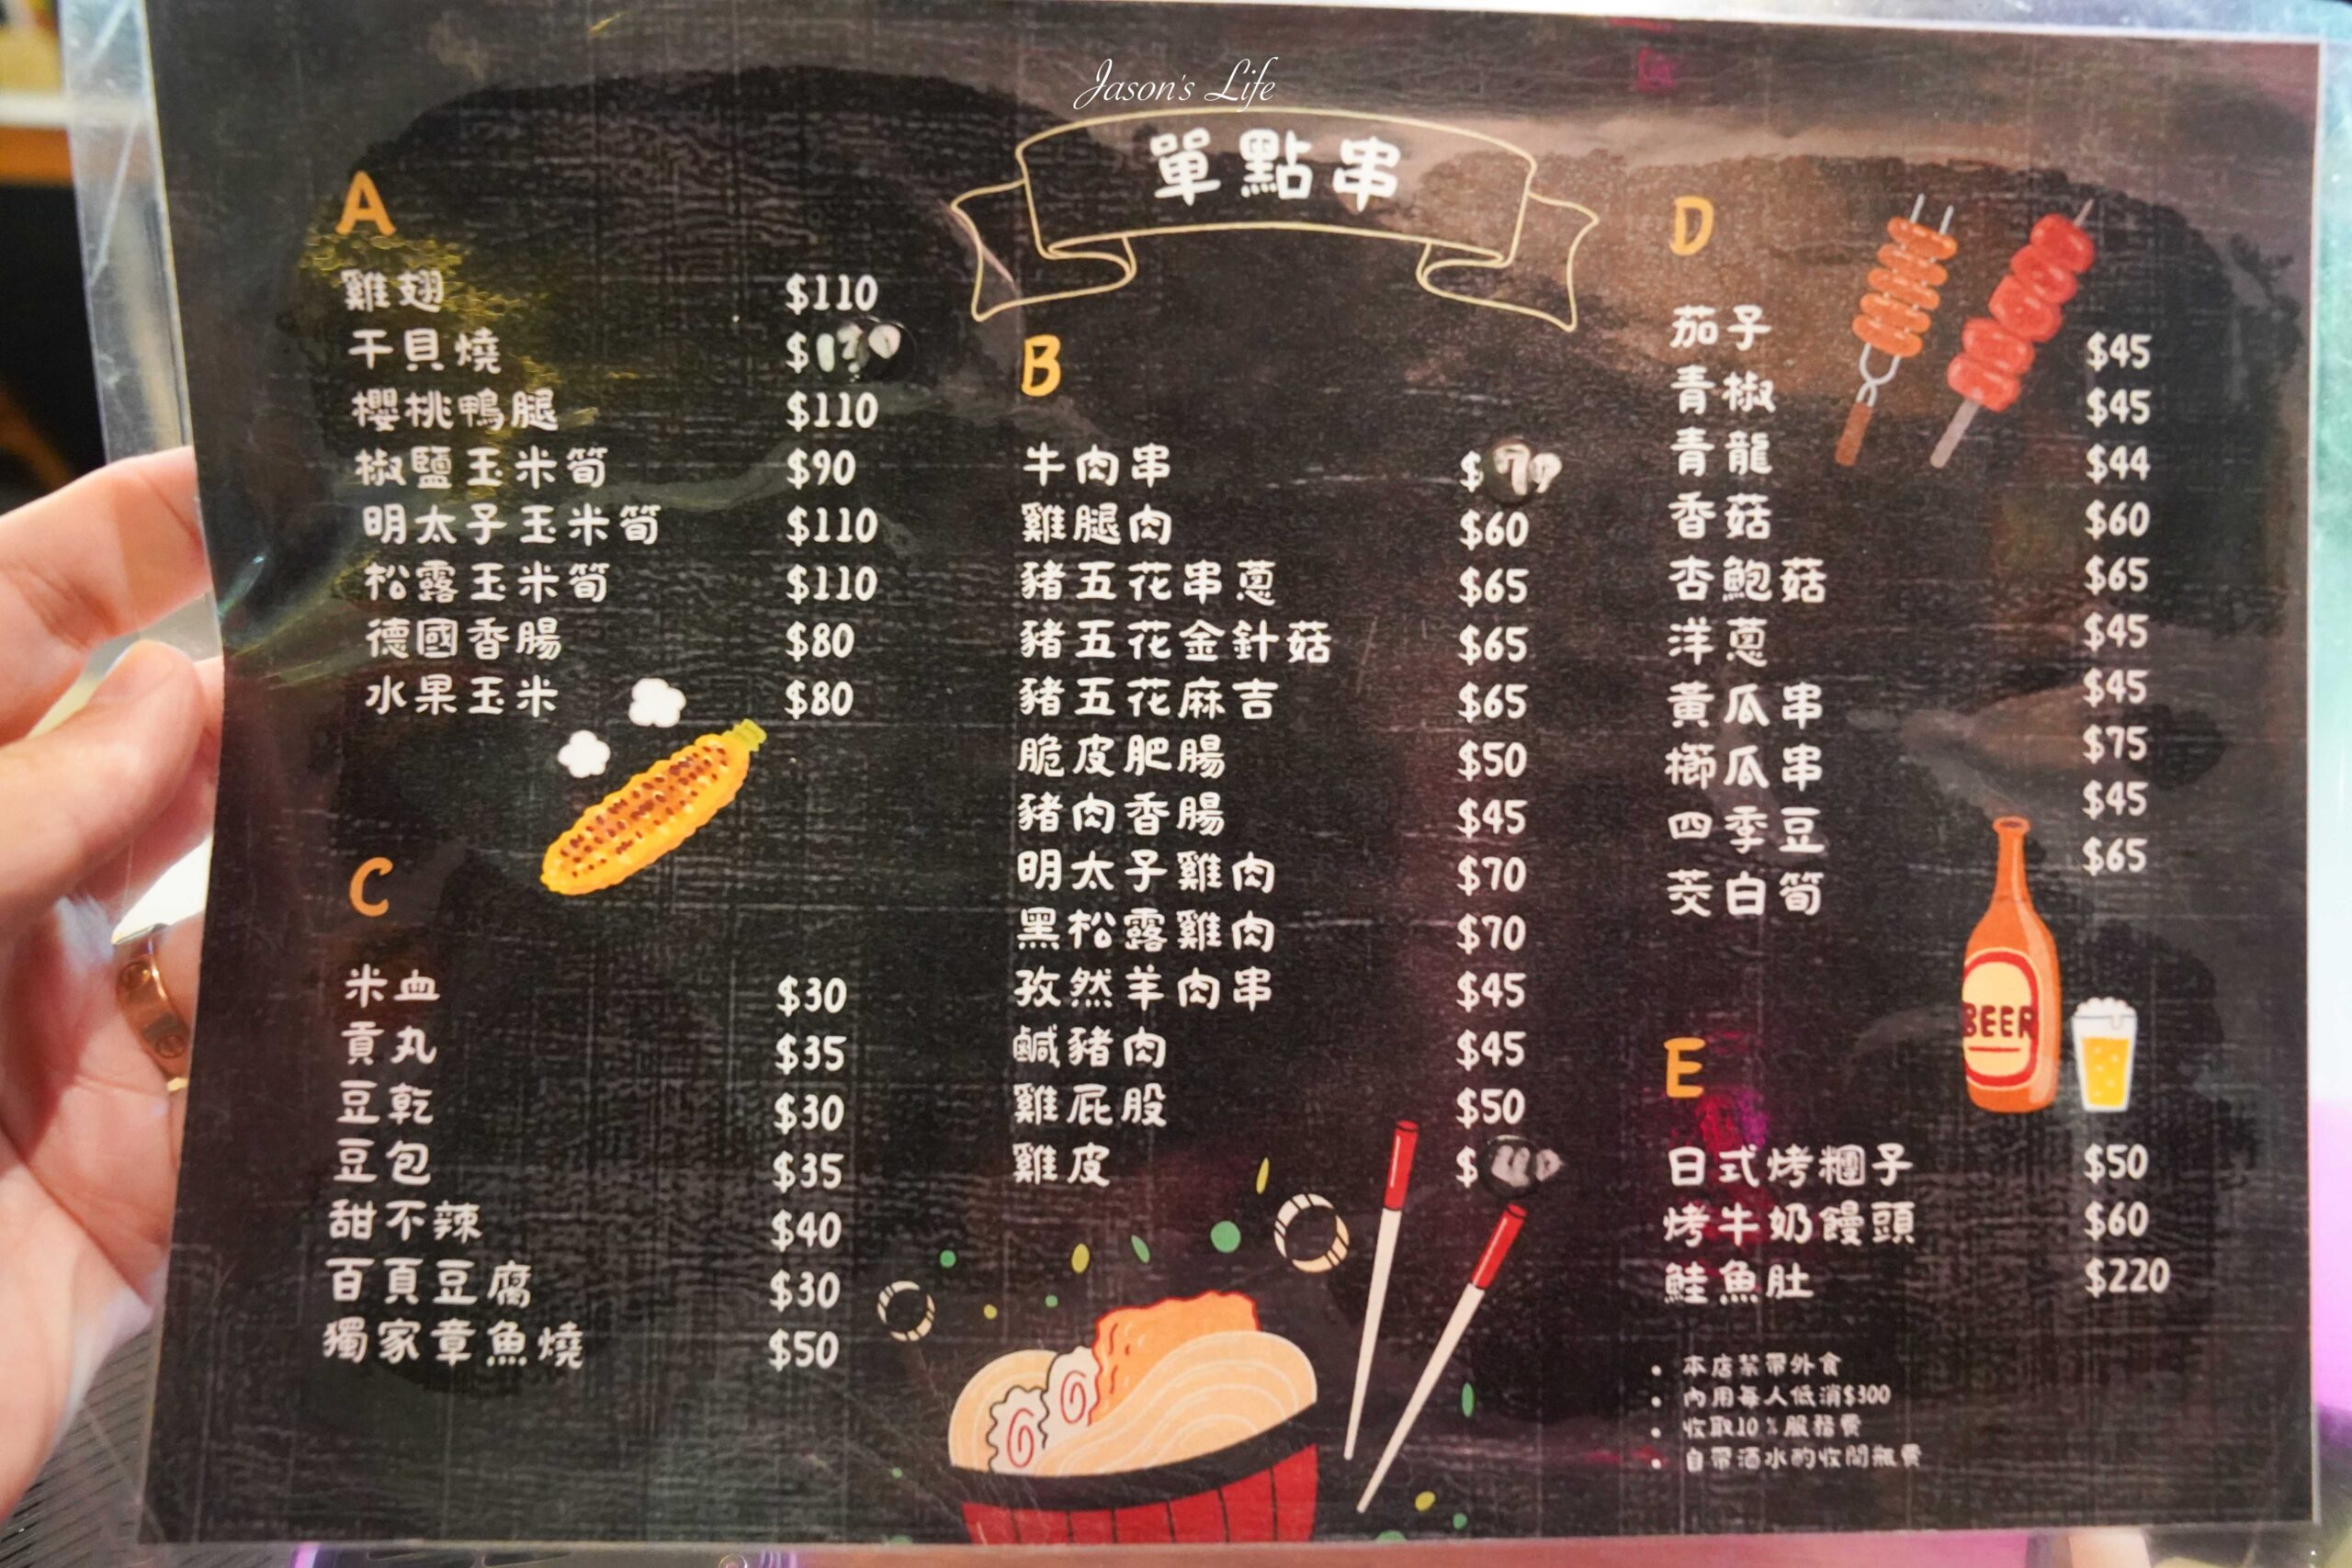 Jason's Life
單點串
A
雞翅 $110
干貝燒 $
櫻桃鴨腿 $110
椒鹽玉米筍 $90
明太子玉米筍 $110
松露玉米筍 $110
德國香腸 $80
水果玉米 $80
C
米血 $30
貢丸 $35
豆乾 $30
豆包 $35
甜不辣 $40
百頁豆腐 $30
獨家章魚燒 $50
B
牛肉串 $
雞腿肉 $60
豬五花串蔥 $65
豬五花金針菇 $65
豬五花麻吉 $65
脆皮肥腸 $50
豬肉香腸 $45
明太子雞肉 $70
黑松露雞肉 $70
孜然羊肉串 $45
鹹豬肉 $45
雞屁股 $50
雞皮 $
D
茄子 $45
青椒 $45
青龍 $44
香菇 $60
杏鮑菇 $65
洋蔥 $45
黃瓜串 $45
櫛瓜串 $75
四季豆 $45
茭白筍 $65
BEER
E
日式烤糰子 $50
烤牛奶饅頭 $60
鮭魚肚 $220
• 本店禁帶外食
• 內用每人低消$300
• 收取10%服務費
• 自帶酒水酌收開瓶費